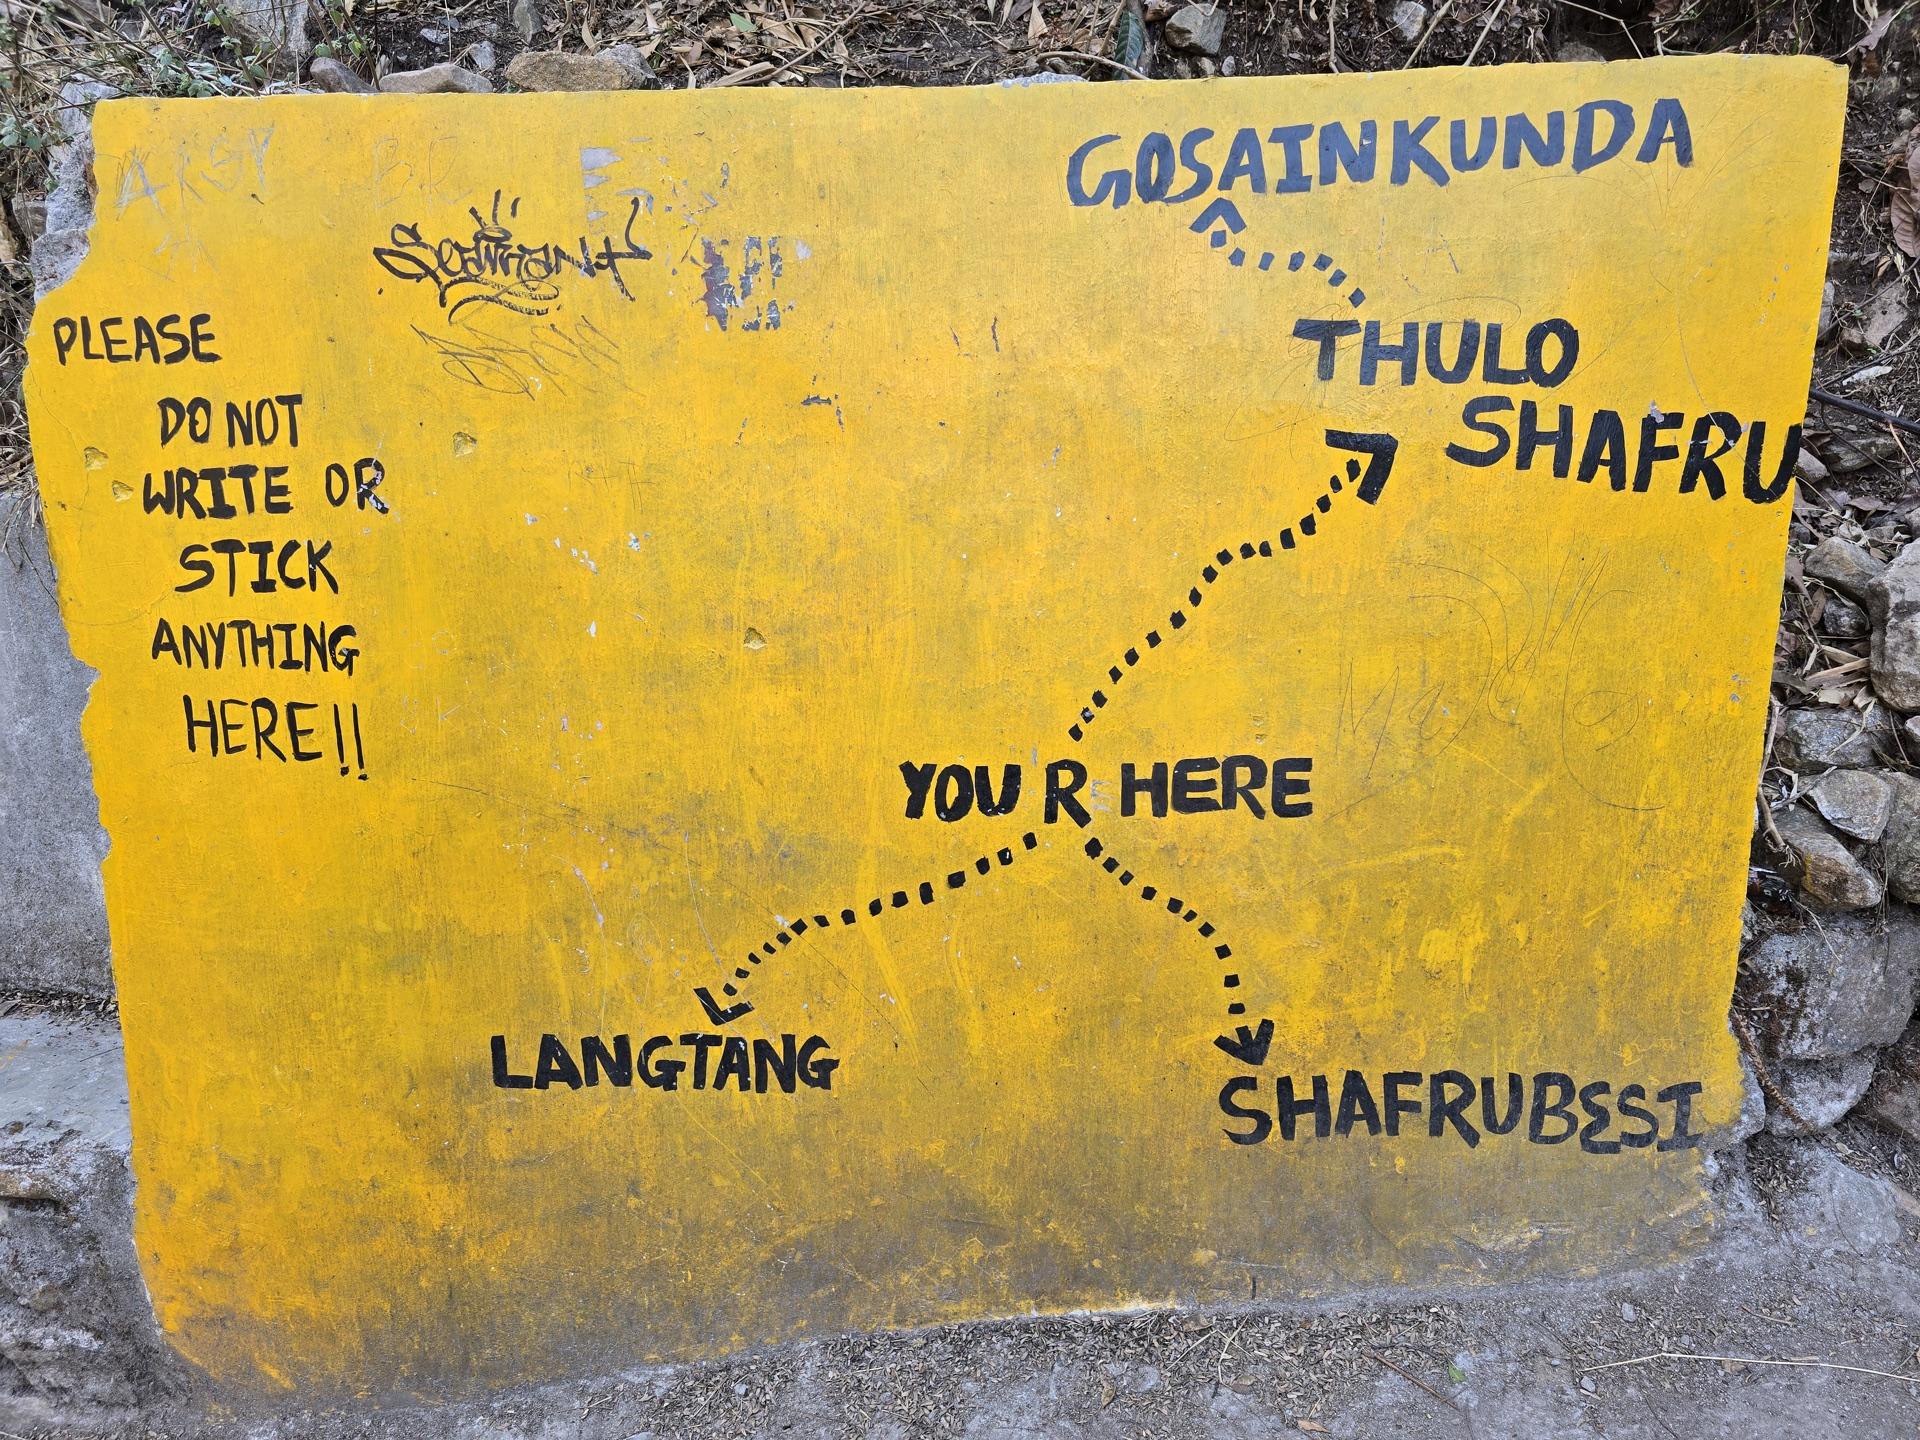 GOSAINKUNDA
THULO
SHAFRU
PLEASE
DO NOT
WRITE OR
STICK
ANYTHING
HERE!!
YOU R HERE
LANGTANG
SHAFRUBESI